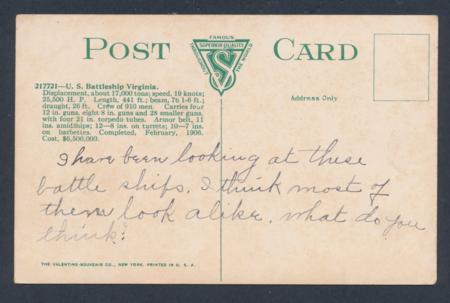 POST CARD
FAMOUS
SUPERIOR QUALITY
THROUGHOUT THE WORLD
217721—U. S. Battleship Virginia.
Displacement, about 17,000 tons; speed, 19 knots;
25,500 H. P. Length, 441 ft.; beam, 76 1-6 ft.;
draught, 26 ft. Crew of 910 men. Carries four
12 in. guns, eight 8 in. guns and 28 smaller guns,
with four 21 in. torpedo tubes. Armor belt, 11
ins. amidships; 12—8 ins. on turrets; 10—7 ins.
on barbettes. Completed, February, 1906.
Cost, $6,500,000.
Address Only
I have been looking at these
battle ships. I think most of
them look alike. what do you
think?
THE VALENTINE-SOUVENIR CO., NEW YORK. PRINTED IN U. S. A.